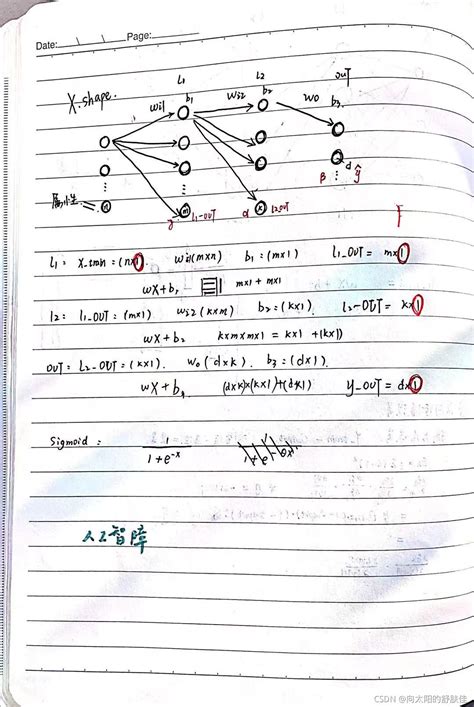 Date: Page:
L1 L2 out
X.shape. wi1 b1 wi2 b2 wo b3
d
m L1-OUT α k L2OUT β ŷ
L1: X_train = (n×1). wi1(m×n) b1 = (m×1) L1_OUT = m×1
wX+b1 m×1 + m×1
L2: L1-OUT = (m×1) wi2 (k×m) b2 = (k×1). L2-OUT = k×1
wX+b2 k×m×m×1 = k×1 +(k×1)
OUT = L2-OUT = (k×1). wo(d×k). b3 = (d×1).
wX+b3 (d×k)×(k×1)+(d×1) Y_OUT = d×1
Sigmoid: 1
1+e^-x
人工智障
CSDN @向太阳的舒肤佳